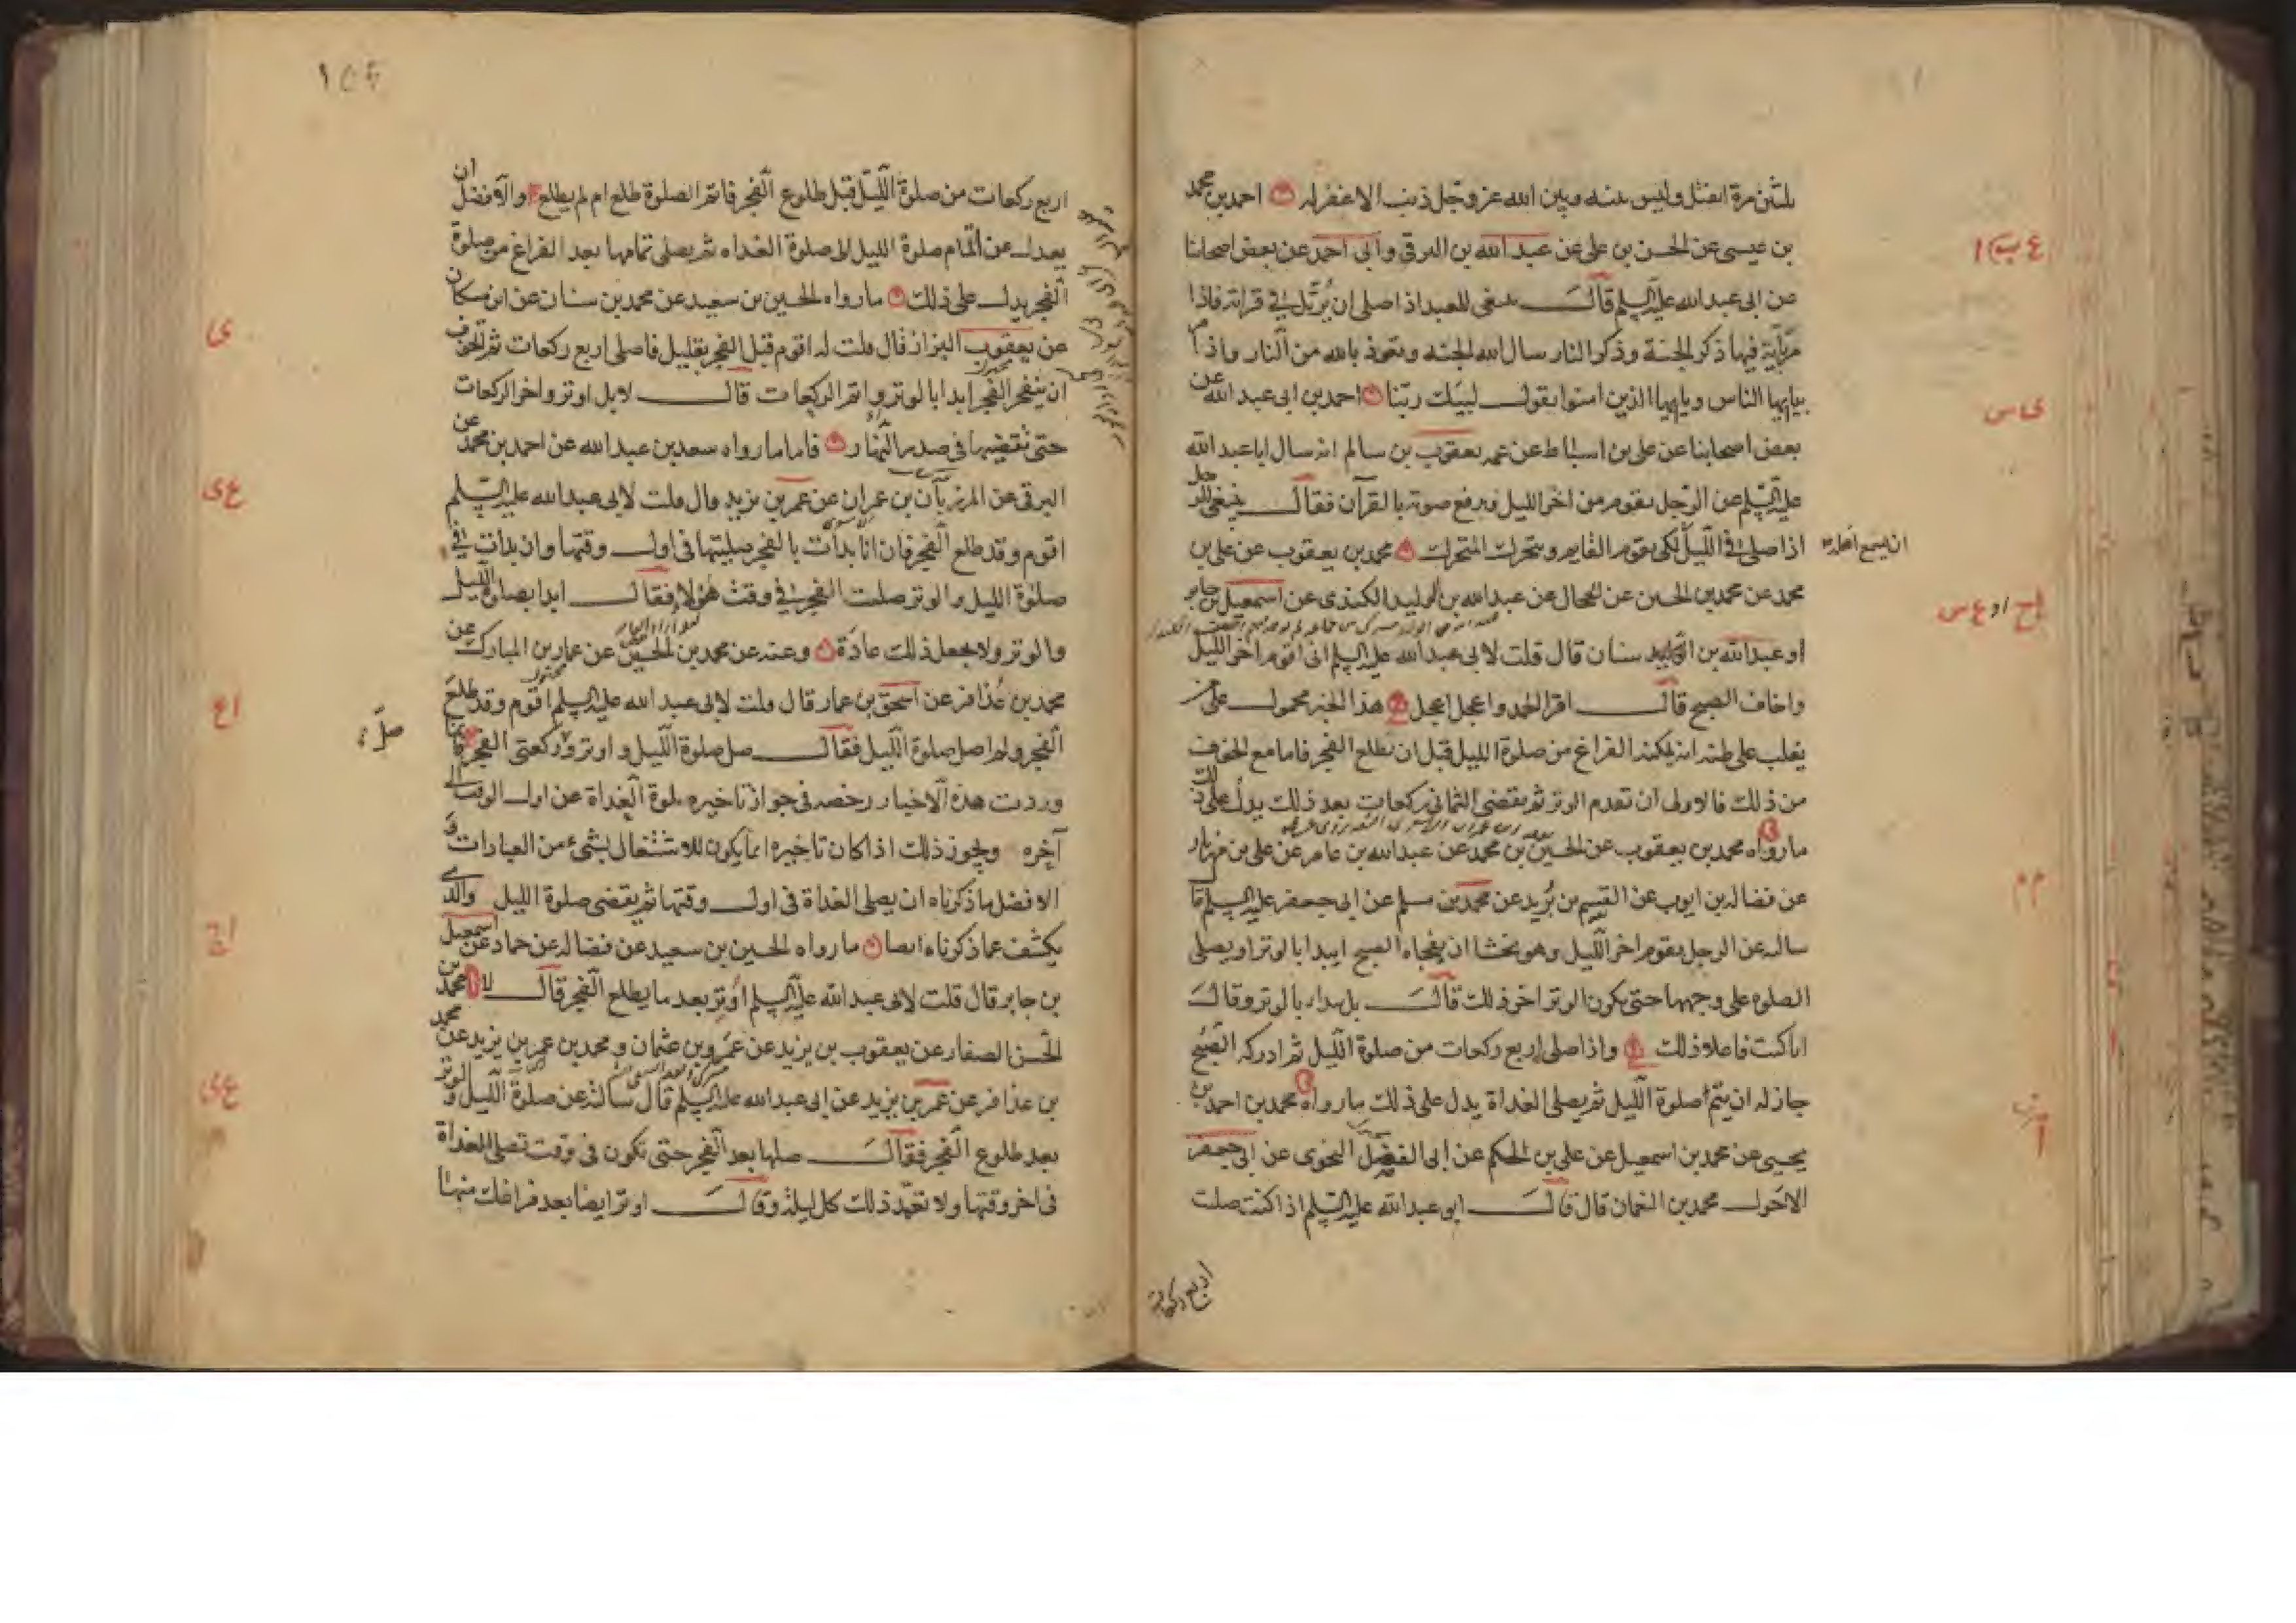 ثلثين مرة انفتل وليس بينه وبين الله عز وجل ذنب الا غفر له احمد بن محمد
بن عيسى عن الحسن بن علي عن عبد الله بن البرقي وابي احمد عن بعض اصحابنا
عن ابي عبد الله عليه السلم قال ينبغي للعبد اذا صلى ان يرتل في قرائته فاذا
مر بآية فيها ذكر الجنة وذكر النار سال الله الجنة وتعوذ بالله من النار واذا مر
بيا ايها الناس ويا ايها الذين امنوا يقول لبيك ربنا احمد بن ابي عبد الله عن
بعض اصحابنا عن علي بن اسباط عن عمه يعقوب بن سالم انه سال ابا عبد الله
عليه السلم عن الرجل يقوم من اخر الليل ويرفع صوته بالقرآن فقال ينبغي للرجل
اذا صلى في الليل لكي يقوم القايم ويتحرك المتحرك محمد بن يعقوب عن علي بن
ان يسمع اهله
محمد عن محمد بن الحسين عن الحجال عن عبد الله بن الوليد الكندي عن اسمعيل بن جابر
او عبد الله بن سنان قال قلت لابي عبد الله عليه السلم اني اقوم اخر الليل
واخاف الصبح قال اقرا الحمد واعجل اعجل هذا الخبر محمول على من
يغلب على ظنه انه يمكنه الفراغ من صلوة الليل قبل ان يطلع الفجر فاما مع الخوف
من ذلك فالاولى ان تقدم الوتر ثم يقضي الثماني ركعات بعد ذلك يدل على ذلك
ما رواه محمد بن يعقوب عن الحسين بن محمد عن عبد الله بن عامر عن علي بن مهزيار
عن فضالة بن ايوب عن القسم بن بريد عن محمد بن مسلم عن ابي جعفر عليه السلم قا
ساله عن الرجل يقوم اخر الليل وهو يخشا ان يفجاه الصبح ايبدا بالوتر او يصلي
الصلوه على وجهها حتى يكون الوتر اخر ذلك قال بل يبدا بالوتر وقال
انا كنت فاعلا ذلك واذا صلى اربع ركعات من صلوة الليل ثم ادركه الصبح
جاز له ان يتم صلوة الليل ثم يصلي الغداة يدل على ذلك ما رواه محمد بن احمد بن
يحيى عن محمد بن اسمعيل عن علي بن الحكم عن ابي الفضل النحوي عن ابي جعفر
الاحول محمد بن النعمان قال قال ابو عبد الله عليه السلم اذا كنت صليت
اربع ركعات
اربع ركعات من صلوة الليل قبل طلوع الفجر فاتم الصلوة طلع ام لم يطلع والافضل ان
يعدل عن اتمام صلوة الليل الى صلوة الغداه ثم يصلي تمامها بعد الفراغ من صلوة
الفجر يدل على ذلك ما رواه الحسين بن سعيد عن محمد بن سنان عن ابن مسكان
عن يعقوب البزاز قال قلت له اقوم قبل الفجر بقليل فاصلي اربع ركعات ثم اتخوف
ان ينفجر الفجر ابدا بالوتر او اتم الركعات قال لا بل اوتر واخر الركعات
حتى تقضيها في صدر النهار فاما ما رواه سعد بن عبد الله عن احمد بن محمد عن
البرقي عن المرزبان بن عمران عن عمر بن يزيد قال قلت لابي عبد الله عليه السلم
اقوم وقد طلع الفجر فان انا بدأت بالفجر صليتها في اول وقتها وان بدات في
صلوة الليل والوتر صليت الفجر في وقت هؤلا فقال ابدا بصلوة الليل
والوتر ولا يجعل ذلك عادة وعنه عن محمد بن الحسين عن عمار بن المبارك عن
محمد بن عذافر عن اسحق بن عمار قال قلت لابي عبد الله عليه السلم اقوم وقد طلع
الفجر ولم اصل صلوة الليل فقال صل صلوة الليل واوتر وركعتي الفجر فانما
وردت هذه الاخبار رخصه في جواز تاخير صلوة الغداة عن اول الوقت الى
آخره ويجوز ذلك اذا كان تاخيره انما يكون للاشتغال بشيء من العبادات و
الافضل ما ذكرناه ان يصلي الغداة في اول وقتها ثم يقضي صلوة الليل والذي
يكشف عما ذكرناه ايضا ما رواه الحسين بن سعيد عن فضاله عن حماد عن اسمعيل
بن جابر قال قلت لابي عبد الله عليه السلم اوتر بعد ما يطلع الفجر قال لا محمد بن
الحسن الصفار عن يعقوب بن يزيد عن عمرو بن عثمان ومحمد بن عمر بن يزيد عن محمد
بن عذافر عن عمر بن يزيد عن ابي عبد الله عليه السلم قال سالته عن صلوة الليل والوتر
بعد طلوع الفجر فقال صلها بعد الفجر حتى تكون في وقت تصلي الغداة
في اخر وقتها ولا تعمد ذلك كل ليلة وقال اوتر ايضا بعد فراغك منها